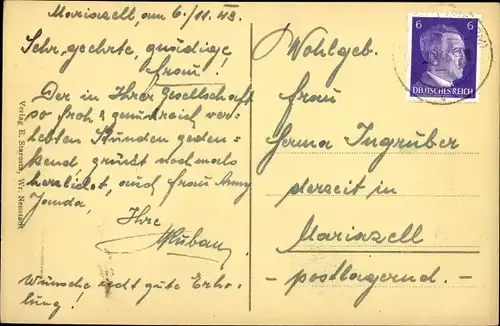 Mariazell, am 6./11.43.
Sehr geehrte, gnädige
Frau!
Der in Ihrer Gesellschaft
so froh & genussreich ver-
lebten Stunden geden-
kend, grüsst nochmals
herzlichst, auch Frau Anny
Janda,
Ihre
Wünsche recht gute Erho-
lung!
Verlag E. Wr. Neustadt
6 6
DEUTSCHES REICH
Wohlgeb.
Frau
Herma Ingruber
derzeit in
Mariazell
- postlagernd. -